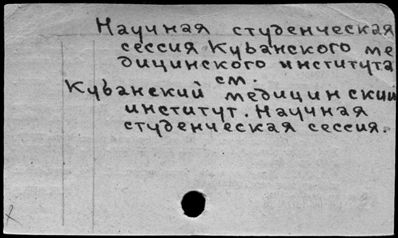 Научная студенческая
сессия Кубанского ме
дицинского института
см.
Кубанский медицинский
институт. Научная
студенческая сессия.